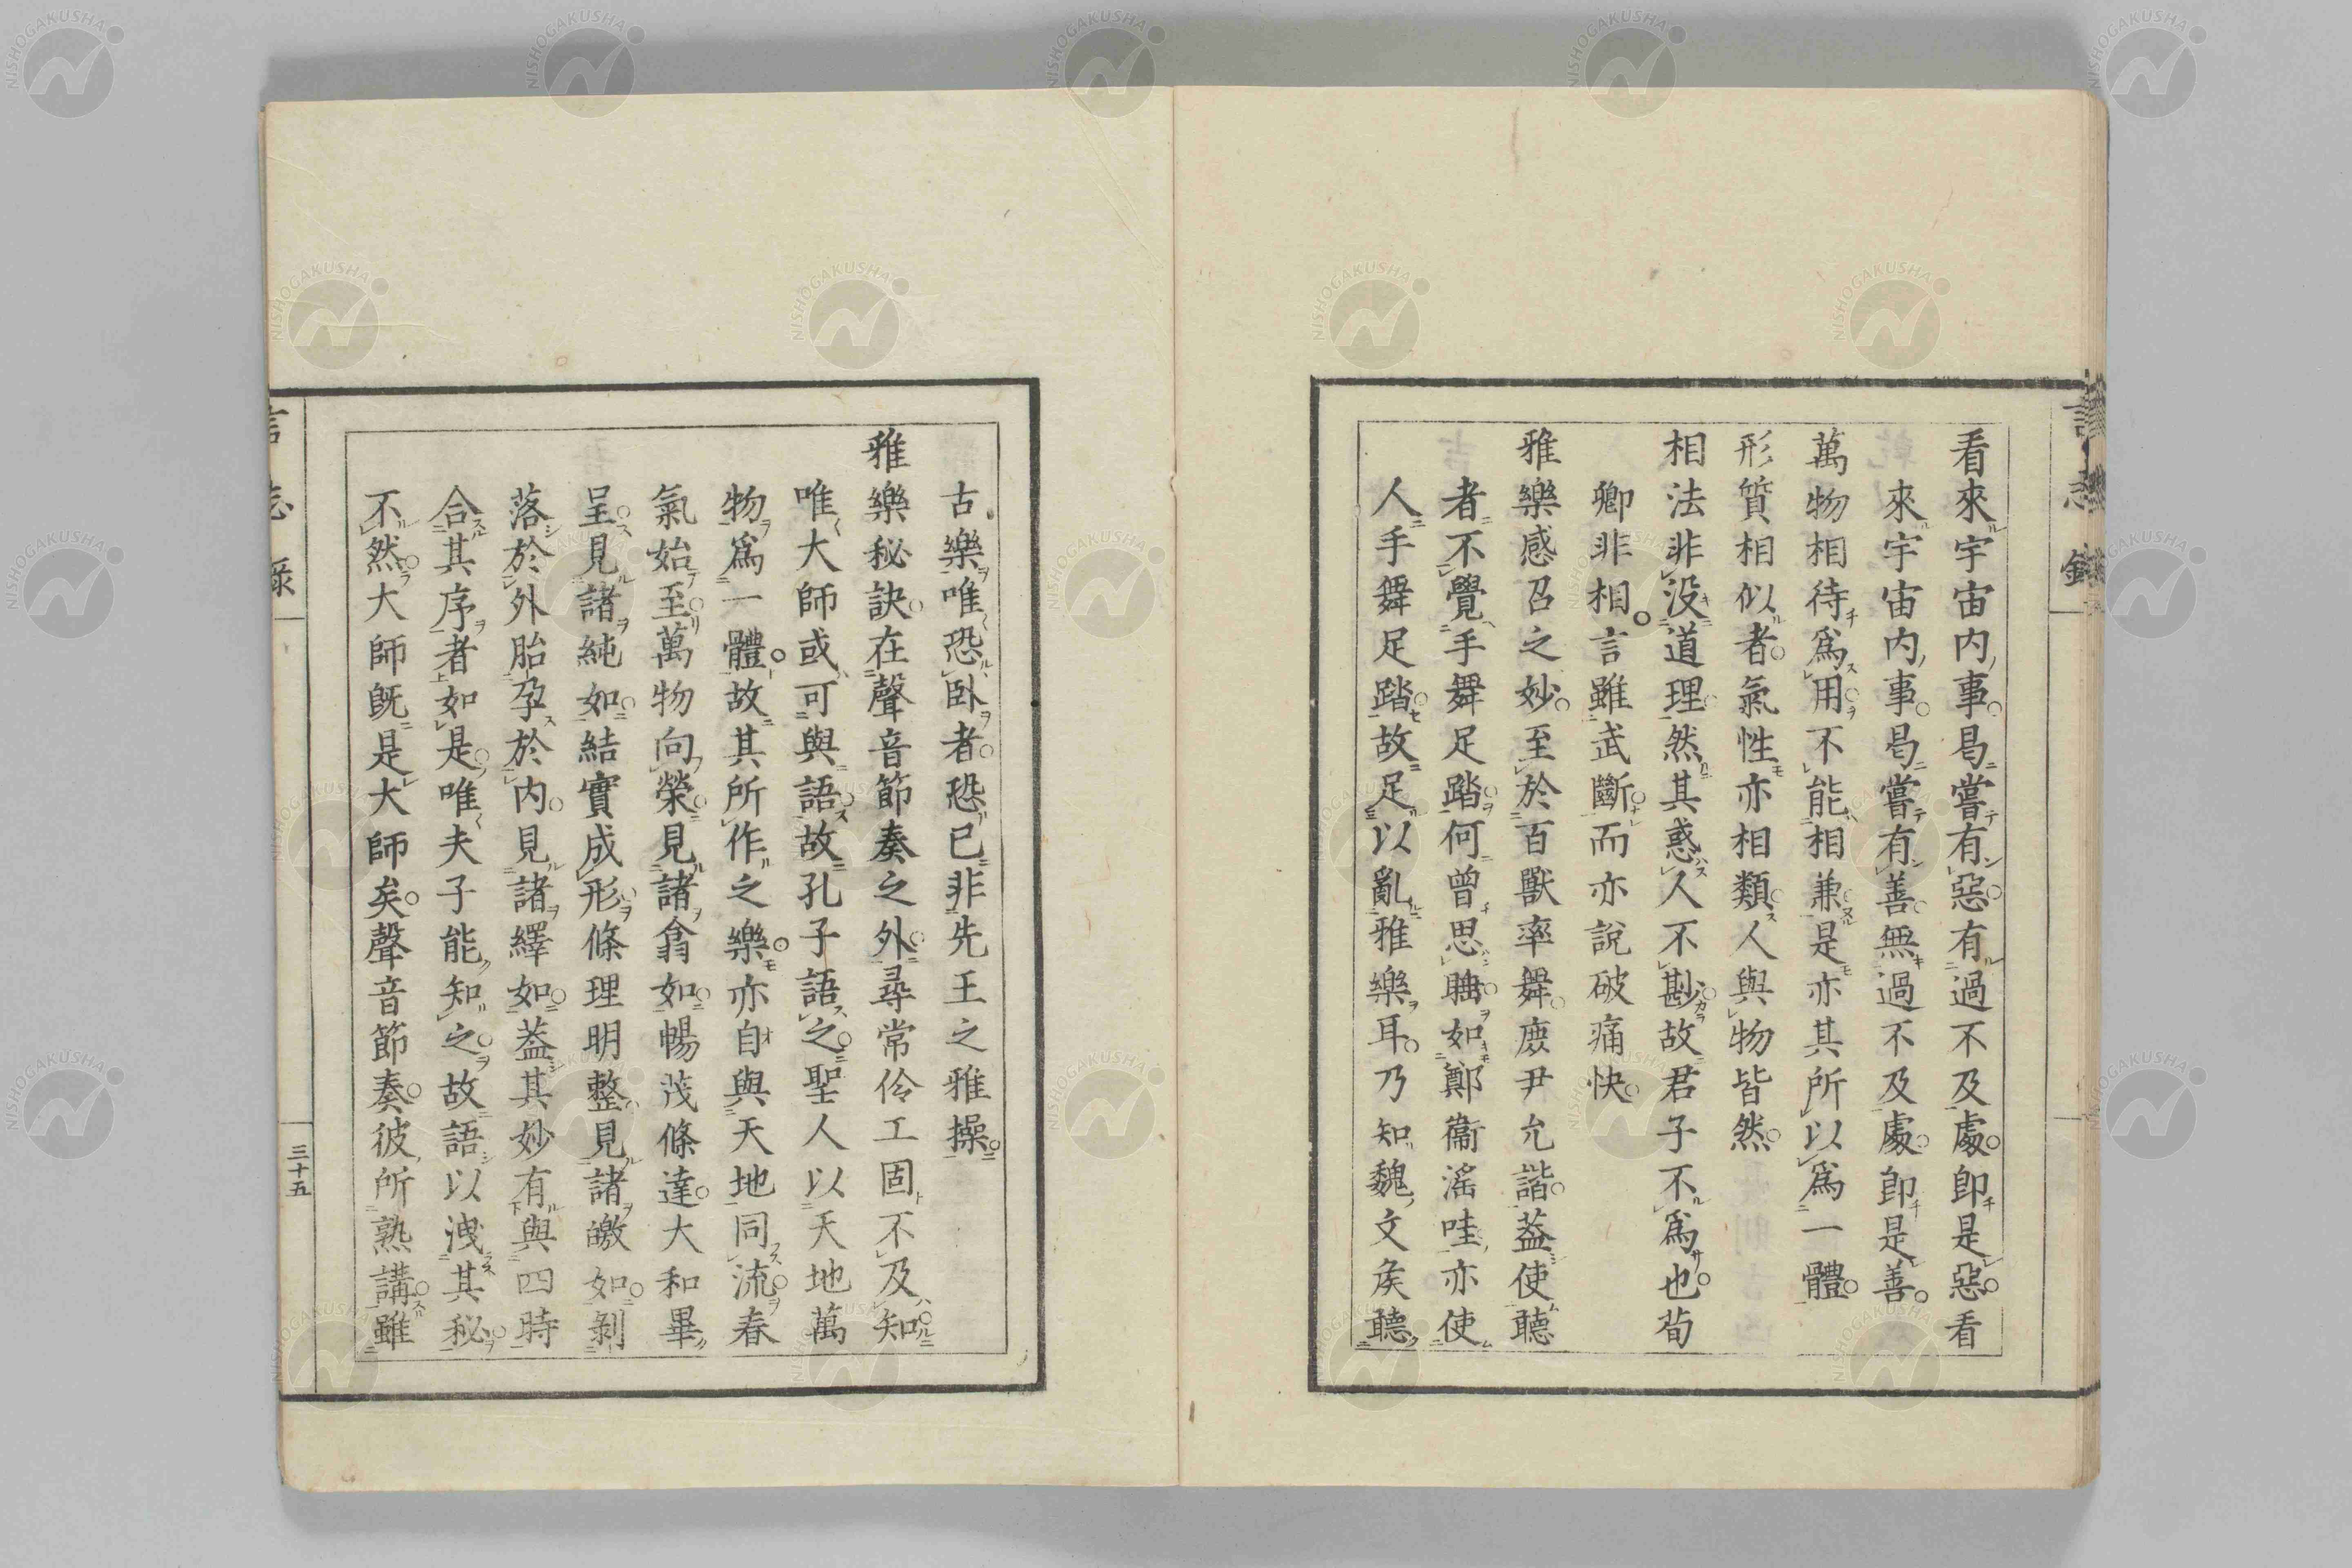 言志錄
看來宇宙内事曷嘗有惡有過不及處即是惡看
來宇宙内事曷嘗有善無過不及處即是善
萬物相待爲用不能相兼是亦其所以爲一體
形質相似者氣性亦相類人與物皆然
相法非没道理然其惑人不尠故君子不爲也荀
卿非相言雖武斷而亦說破痛快
雅樂感召之妙至於百獸率舞庶尹允諧蓋使聽
者不覺手舞足踏何曾思睡如鄭衞滛哇亦使
人手舞足踏故足以亂雅樂耳乃知魏文矦聽
古樂唯恐臥者恐已非先王之雅操
雅樂秘訣在聲音節奏之外尋常伶工固不及知
唯大師或可與語故孔子語之聖人以天地萬
物爲一體故其所作之樂亦自與天地同流春
氣始至萬物向榮見諸翕如暢茂條達大和畢
呈見諸純如結實成形條理明整見諸皦如剝
落於外胎孕於内見諸繹如蓋其妙有與四時
合其序者如是唯夫子能知之故語以洩其秘
不然大師旣是大師矣聲音節奏彼所熟講雖
言志錄
三十五
NISHOGAKUSHA